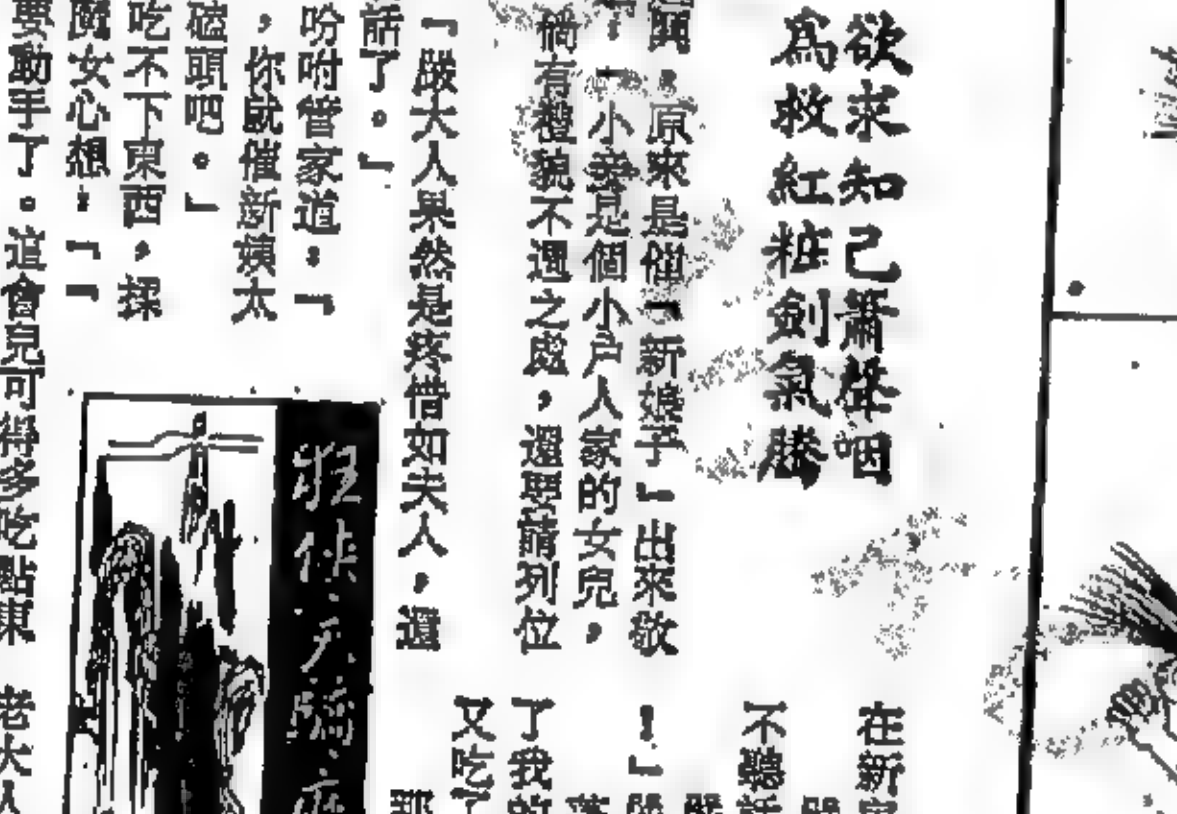 欲求知己簫聲咽
為救紅粧劍氣騰
原來是催「新娘子」出來敬
「小妾是個小戶人家的女兒,
倘有禮貌不週之處,還要請列位
「嚴大人果然是疼惜如夫人,還
話了。」
吩咐管家道:「
,你就催新姨太
磕頭吧。」
吃不下東西,揉
魔女心想:「「
要動手了。這會兒可得多吃點東
狂俠天驕魔
在新
不聽話
!」
了我的
又吃了
那
老大人